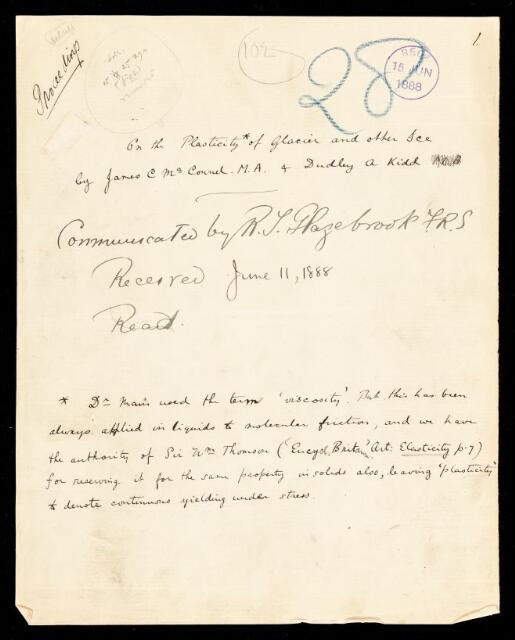 1.
Proceedings
102
28
REC
15 JUN
1888
On the Plasticity* of Glacier and other Ice
by James C McConnel. M.A. & Dudley A Kidd
Communicated by R. T. Glazebrook F.R.S
Received June 11, 1888
Read.
* Dr Main used the term 'viscosity'. But this has been
always applied in liquids to molecular friction, and we have
the authority of Sir Wm Thomson ('Encycl. Britan.' Art: Elasticity p. 7)
for reserving it for the same property in solids also, leaving 'plasticity'
to denote continuous yielding under stress.